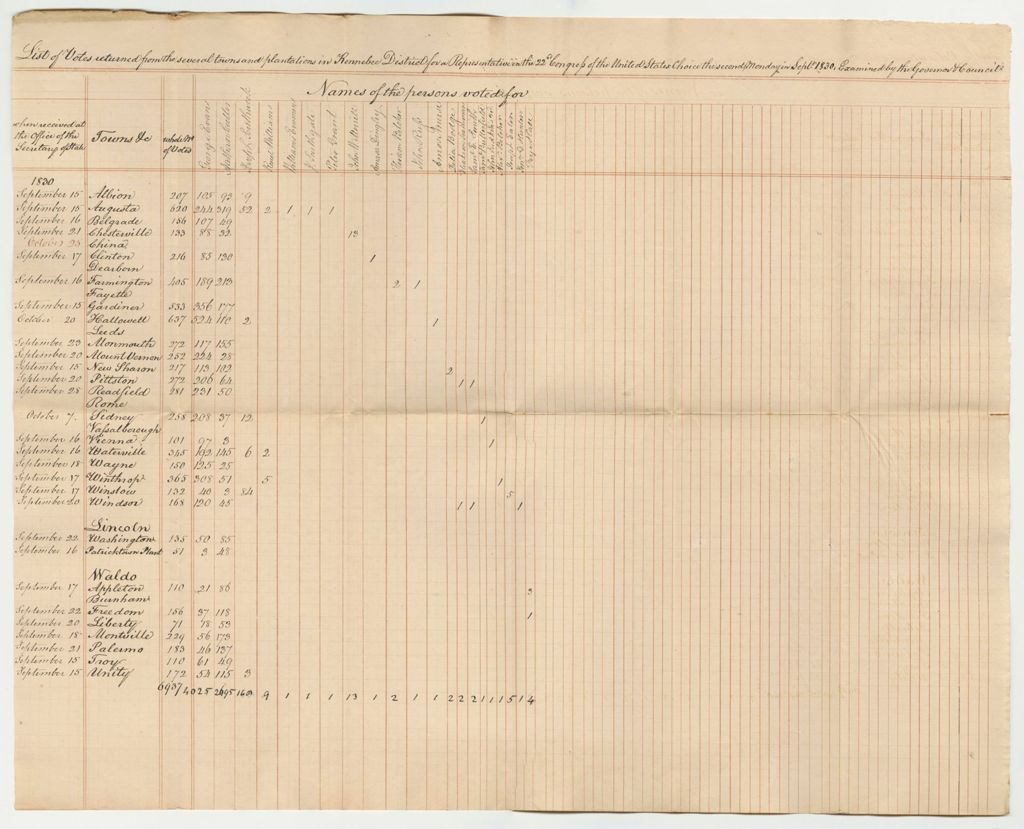 List of Votes returned from the several towns and plantations in Kennebec District for a Representative in the 22d Congress of the United States Choice the second Monday in Septr 1830. Examined by the Governor & Council
Names of the persons voted for
when received at the Office of the Secretary of State Towns &c whole No of Votes George Evans Reuel Williams Peter Grant
1830
September 15 Albion 207 105 93 9
September 15 Augusta 620 244 319 52 2 1 1 1
September 16 Belgrade 156 107 49
September 21 Chesterville 133 88 32 13
October 25 China
September 17 Clinton 216 85 130 1
Dearborn
September 16 Farmington 405 189 213 2 1
Fayette
September 15 Gardiner 533 356 177
October 20 Hallowell 637 524 110 2 1
Leeds
September 23 Monmouth 272 117 155
September 20 Mount Vernon 252 224 28
September 15 New Sharon 217 113 102 2
September 20 Pittston 272 206 64 1 1
September 28 Readfield 281 231 50
Rome
October 7. Sidney 258 208 37 12 1
Vassalborough
September 16 Vienna 101 97 3 1
September 16 Waterville 345 192 145 6 2
September 18 Wayne 150 125 25
September 17 Winthrop 365 308 51 5 1
September 17 Winslow 132 40 3 84 5
September 20 Windsor 168 120 45 1 1 1
Lincoln
September 22 Washington 135 50 85
September 16 Patricktown Plant 51 3 48
Waldo
September 17 Appleton 110 21 86 3
Burnham
September 22 Freedom 156 37 118 1
September 20 Liberty 71 18 53
September 18 Montville 229 56 173
September 21 Palermo 183 46 137
September 15 Troy 110 61 49
September 15 Unity 172 54 115 3
6937 4025 2695 168 9 1 1 1 13 1 2 1 1 2 2 2 1 1 1 5 1 4